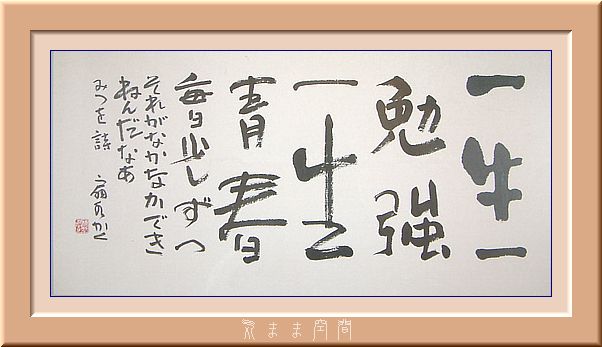 一生
勉強
一生
青春
毎日少しずつ
それがなかなかでき
ねんだなあ
みつを 詩
かく
気まま空間